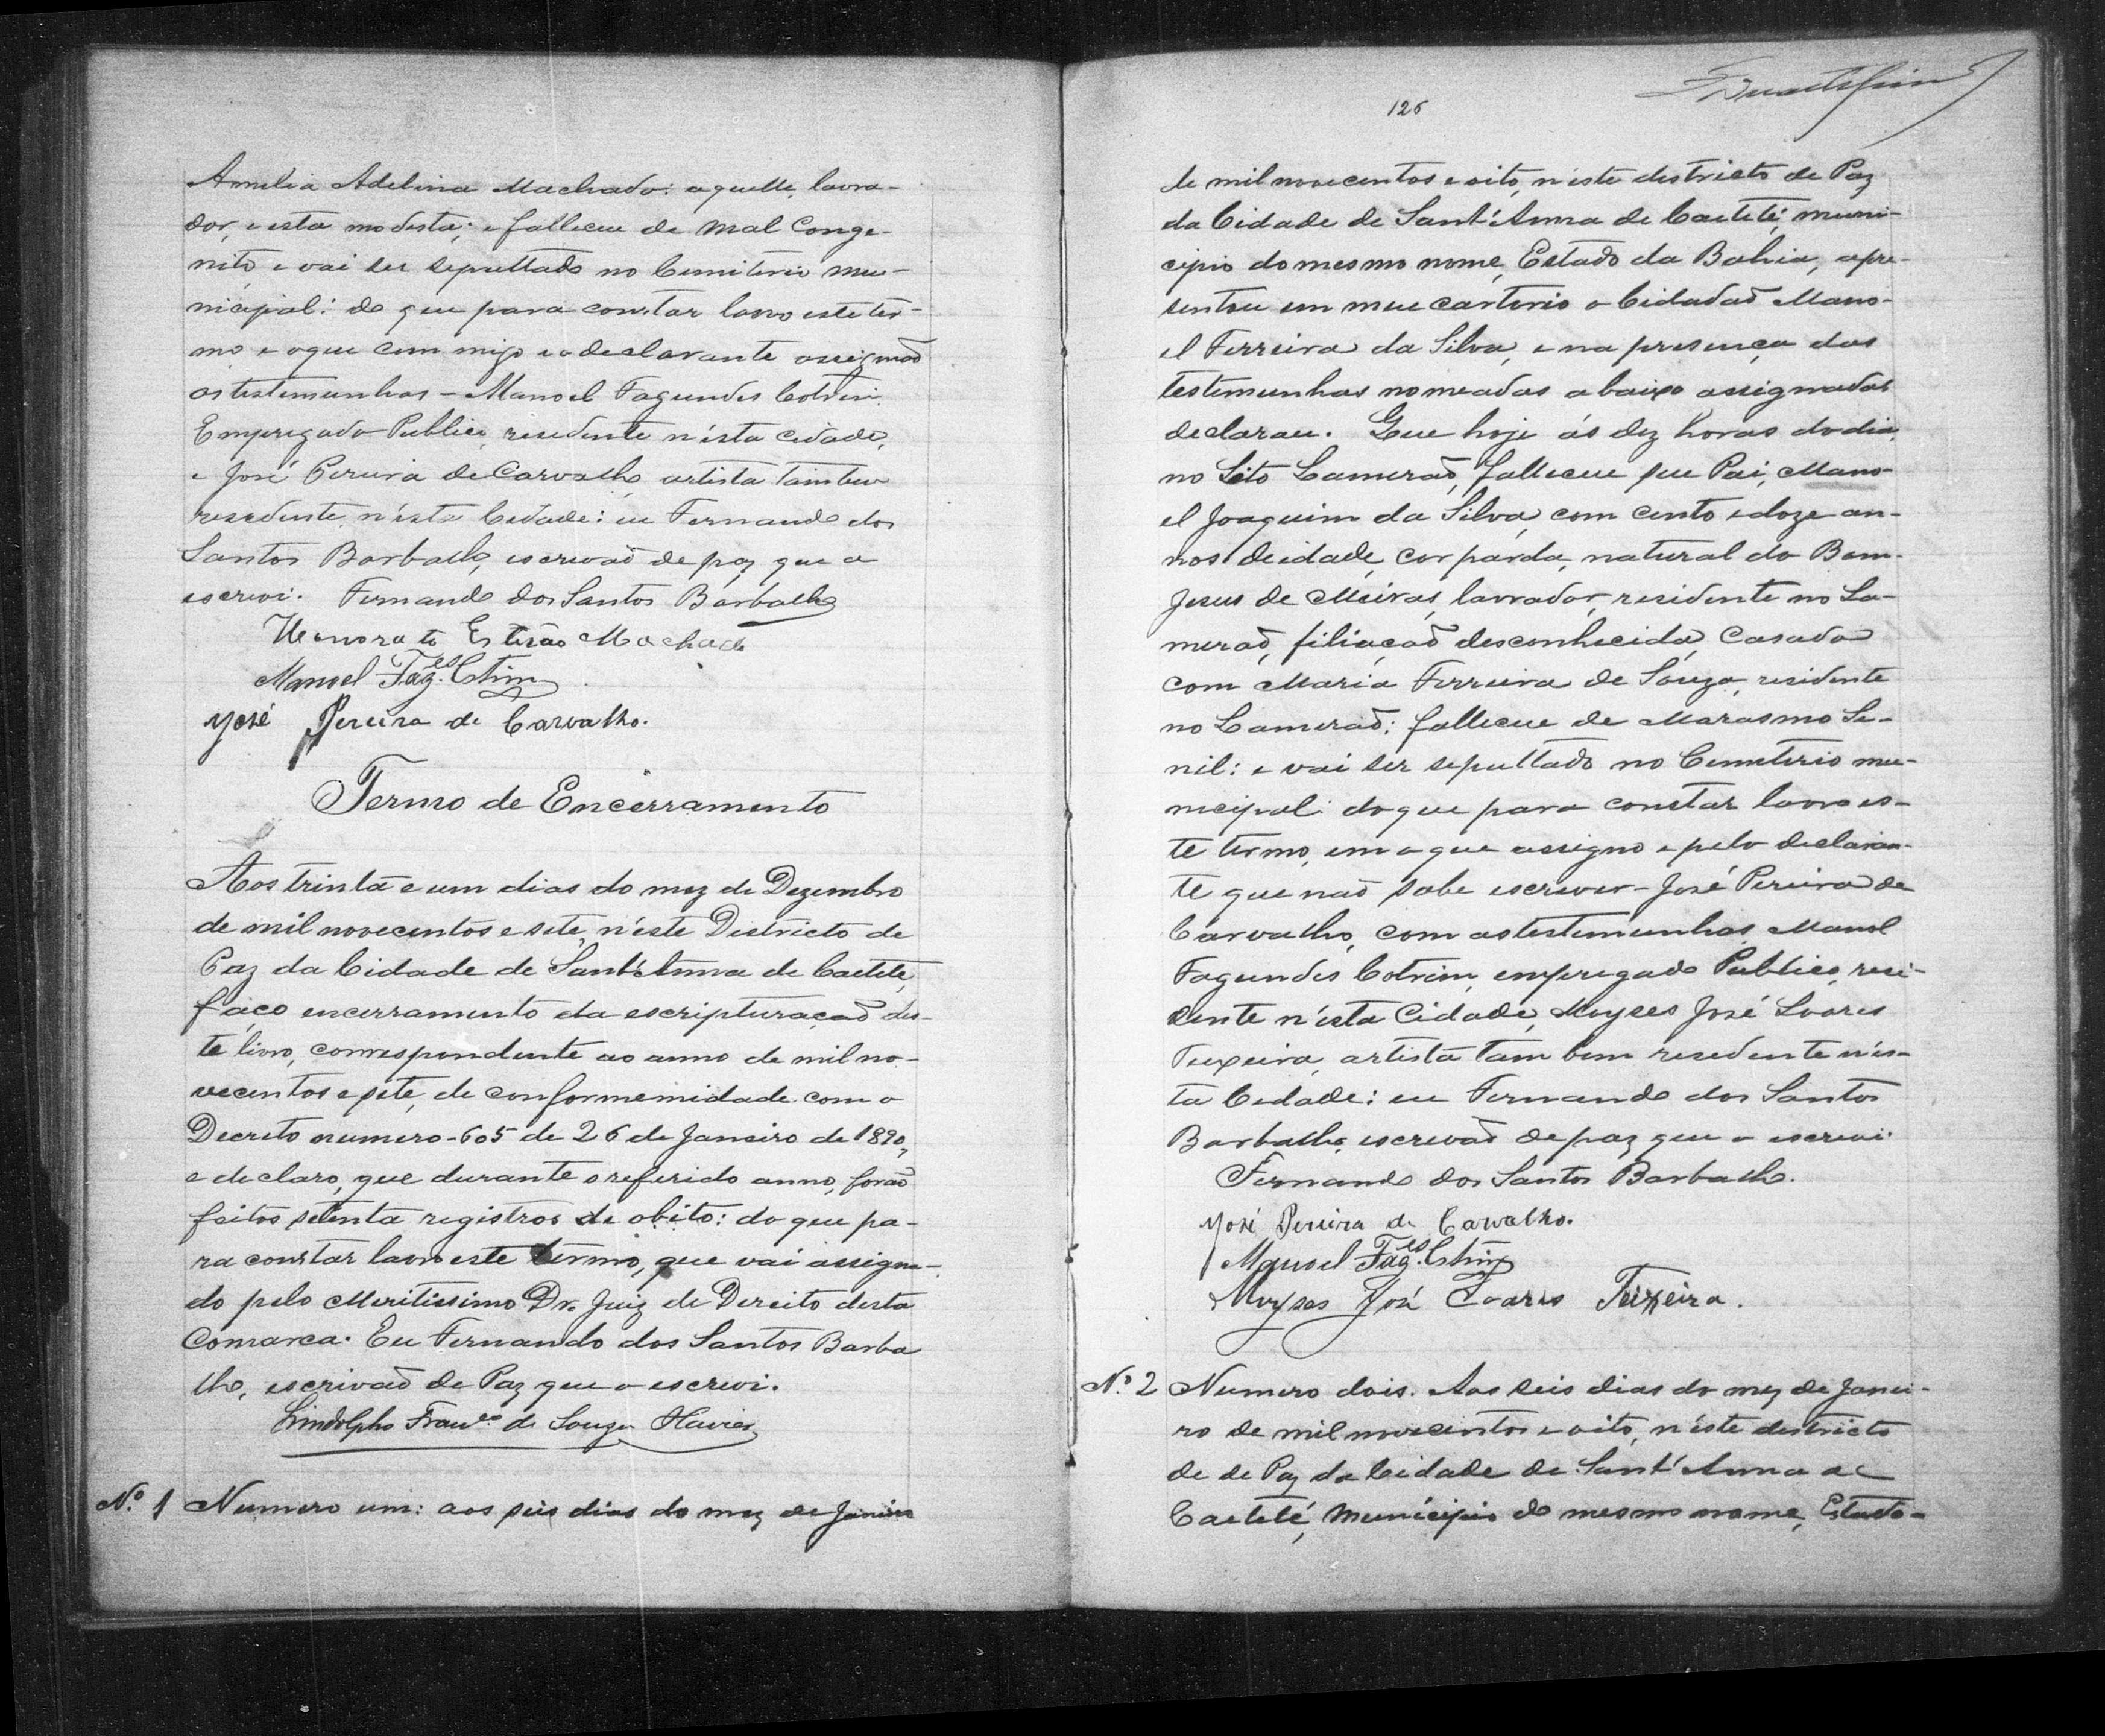 Amelia Adelina Machado: aquelle, lavra-
dor, e esta modesta; e falleceu de mal Conge-
nito e vai ser sepultado no Cemiterio mu-
nicipal: do que para constar lavro este ter-
mo e o que com migo e o declarante assignaõ
as testemunhas - Manoel Fagundes Cotrim
Empregado Publico residente n'ésta cidade,
e José Pereira de Carvalho artista tambem
resedente n'ésta Cedade: eu Fernando dos
Santos Barbalho, escrevaõ de paz que o
escrevi. Fernando dos Santos Barbalho
Honorato Machado
Manoel Fag.es Cotrim
José Pereira de Carvalho.
Termo de Encerramento
Aos trinta e um dias do mez de Dezembro
de mil novecentos e sete, n'éste Destricto de
Paz da Cidade de Sant'Anna de Caeteté,
faço encerramento da escripturaçaõ des-
te livro, correspondente ao anno de mil no-
vecentos e sete, de conformemidade com o
Decreto numero - 605 de 26 de Janeiro de 1890,
e declaro, que durante o referido anno, foraõ
feitos setenta registros de obito: do que pa-
ra constar lavro este termo, que vai assigna-
do pelo Meritissimo Dr. Juiz de Dereito desta
Comarca. Eu Fernando dos Santos Barba
lho, escrivaõ de Paz que o escrevi.
Lindolpho Fran.co de Souza
N.º 1 Numero um: aos seis dias do mez de Janeiro
126
de mil novecentos e oito, n'éste destricto de Paz
da Cidade de Sant'Anna de Caeteté, muni-
cipio do mesmo nome, Estado da Bahia, apre-
sentou em meu cartorio o Cidadaõ Mano-
el Ferreira da Silva, e na presença das
testemunhas nomeadas abaixo assignadas
declarau. Que hoje ás dez horas do dia,
no Sito Lameraõ, falleceu seu Pai, Mano-
el Joaquim da Silva, com cento e doze an-
nos de idade, cor parda, natural do Bom
Jesus de Meiras, lavrador, residente no La-
meraõ, filiaçaõ desconhecida, Casado
com Maria Ferreira de Souza, residente
no Lameraõ: falleceu de Marasmo Se-
nil: e vai ser sepultado no Cemeterio mu-
nicipal: do que para constar lavro es-
te termo, em o que assigno e pelo declaran-
te que naõ sabe escrever - José Pereira de
Carvalho, com as testemunhas Manoel
Fagundes Cotrim, empregado Publico, resi-
dente n'ésta Cidade, Moyses José Soares
Teixeira, artista tam bem resedente n'és-
ta Cedade: eu Fernando dos Santos
Barbalho, escrevaõ de paz que o escrevi.
Fernando dos Santos Barbalho.
José Pereira de Carvalho.
Manoel Fag.es Cotrim
Moyses José Soares Teixeira.
N.º 2 Numero dois. Aos seis dias do mez de Janei-
ro de mil novecentos e oito, n'éste destricto
de de Paz da Cidade de Sant'Anna de
Caeteté, Municipio do mesmo nome, Estado-